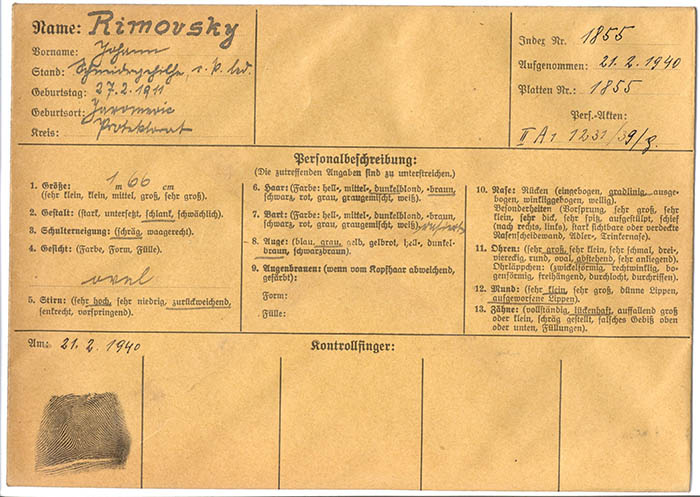 Name: Rimovsky
Vorname: Johann
Stand: Schneidergehilfe, r. k. led.
Geburtstag: 27.2.1911
Geburtsort: Jaromeric
Kreis: Protektorat
Index Nr. 1855
Aufgenommen: 21.2.1940
Platten Nr.: 1855
Pers.-Akten:
II A1 1231/39/g.
Personalbeschreibung:
(Die zutreffenden Angaben sind zu unterstreichen.)
1. Größe: 1 m 66 cm
(sehr klein, klein, mittel, groß, sehr groß).
2. Gestalt: (stark, untersetzt, schlank, schwächlich).
3. Schulterneigung: (schräg, waagerecht).
4. Gesicht: (Farbe, Form, Fülle).
oval
5. Stirn: (sehr hoch, sehr niedrig, zurückweichend,
senkrecht, vorspringend).
6. Haar: (Farbe: hell-, mittel-, dunkelblond, -braun,
schwarz, rot, grau, graugemischt, weiß).
7. Bart: (Farbe: hell-, mittel-, dunkelblond, -braun,
schwarz, rot, grau, graugemischt, weiß) rasiert
8. Auge: (blau, grau, gelb, gelbrot, hell-, dunkel-
braun, schwarzbraun).
9. Augenbrauen: (wenn vom Kopfhaar abweichend,
gefärbt):
Form:
Fülle:
10. Nase: Rücken (eingebogen, gradlinig, ausge-
bogen, winkliggebogen, wellig).
Besonderheiten (Vorsprung, sehr groß, sehr
klein, sehr dick, sehr spitz, aufgestülpt, schief
(nach rechts, links), stark sichtbare oder verdeckte
Nasenscheidewand, Adler-, Trinkernase).
11. Ohren: (sehr groß, sehr klein, sehr schmal, drei-,
viereckig, rund, oval, abstehend, sehr anliegend).
Ohrläppchen: (zwickelförmig, rechtwinklig, bo-
genförmig, freihängend, durchlocht, durchriffen).
12. Mund: (sehr klein, sehr groß, dünne Lippen,
aufgeworfene Lippen).
13. Zähne: (vollständig, lückenhaft, auffallend groß
oder klein, schräg gestellt, falsches Gebiß oben
oder unten, Füllungen).
Am: 21.2.1940
Kontrollfinger: